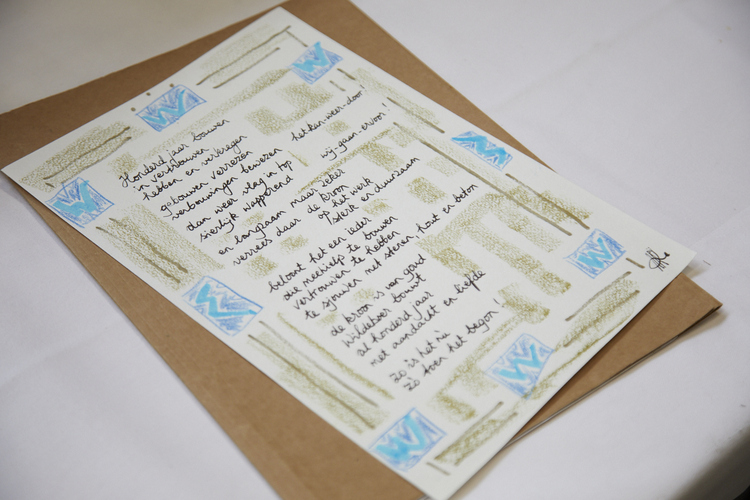 Honderd jaar bouwen
in vertrouwen
hebben en verkregen
het-kan-weer-door!
gebouwen verrezen
verbouwingen bewezen
wij-gaan-ervoor!
dan weer vlag in top
sierlijk wapperend
en langzaam maar zeker
verrees daar de kroon
op het werk
sterk en duurzaam
beloont het een ieder
die meehielp te bouwen
vertrouwen te hebben
te sjouwen met stenen, hout en beton
de kroon is van goud
Wildeboer bouwt
al honderd jaar
met aandacht en liefde
zo is het nú
zó toen het begon!